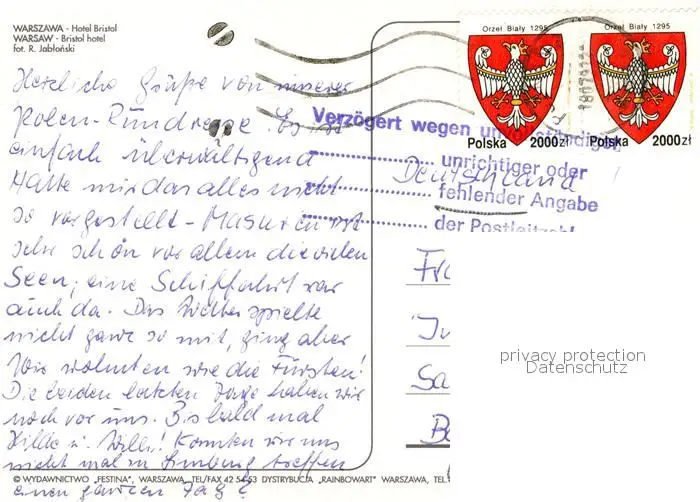 WARSZAWA - Hotel Bristol
WARSAW - Bristol hotel
fot. R. Jabłoński
Orzeł Biały 1295
Orzeł Biały 1295
Polska 2000zł
Polska 2000zł
Herzliche Grüße von unserer
Polen-Rundreise. Es ist
einfach überwältigend
Hatte mir das alles nicht
so vorgestellt - Masuren ist
sehr schön vor allem die vielen
Seen, eine Schiffahrt war
auch da. Das Wetter spielte
nicht ganz so mit, ging aber
Wir wohnten wie die Fürsten!
Die beiden letzten Tage haben wir
noch vor uns. Bis bald mal
Hilde u. Willi! Könnten wir uns
nicht mal in Limburg treffen
einen ganzen Tag?
Verzögert wegen unvollständiger,
unrichtiger oder
fehlender Angabe
der Postleitzahl
Deutschland
Fr
Sa
privacy protection
Datenschutz
© WYDAWNICTWO "FESTINA", WARSZAWA, TEL/FAX 42 54 53 DYSTRYBUCJA „RAINBOWART" WARSZAWA, TEL.